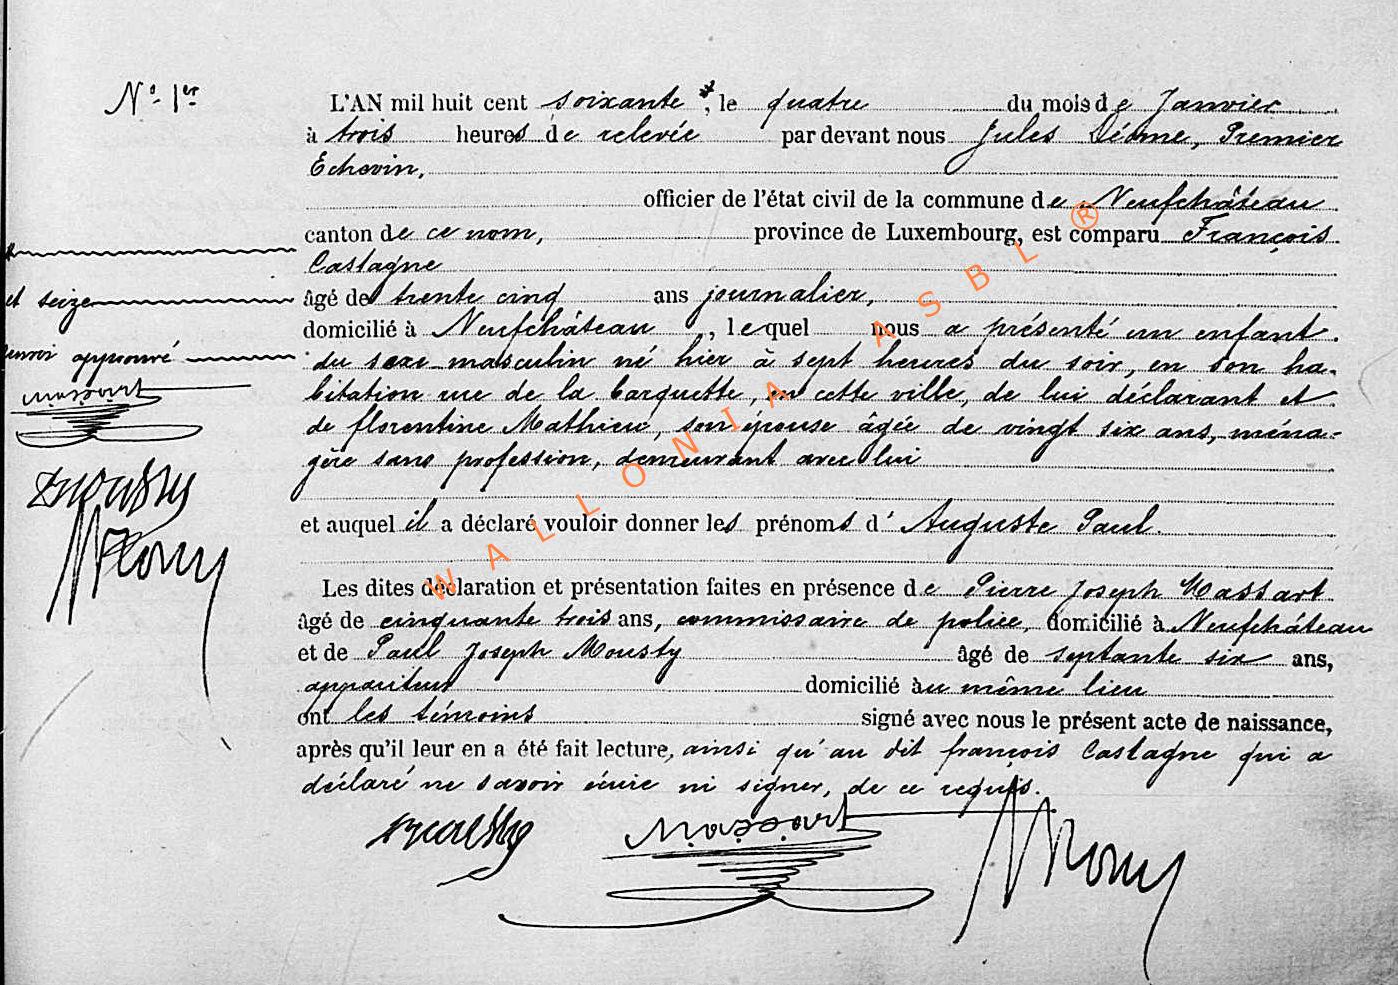 N.º 1er
L'AN mil huit cent soixante *, le quatre du mois de Janvier
à trois heures de relevée par devant nous Jules Déome, Premier
Echevin,
officier de l'état civil de la commune de Neufchâteau
canton de ce nom, province de Luxembourg, est comparu François
Castagne
et seize
âgé de trente cinq ans journalier,
domicilié à Neufchâteau, lequel nous a présenté un enfant
renvoi approuvé
du sexe masculin né hier à sept heures du soir, en son ha-
Massart
bitation rue de la barquette, en cette ville, de lui déclarant et
de florentine Mathieu, son épouse âgée de vingt six ans, ména-
gère sans profession, demeurant avec lui
Mousty
et auquel il a déclaré vouloir donner les prénoms d' Auguste Paul.
Les dites déclaration et présentation faites en présence de Pierre Joseph Massart
âgé de cinquante trois ans, commissaire de police, domicilié à Neufchâteau
et de Paul Joseph Mousty âgé de septante six ans,
appariteur domicilié au même lieu
ont les témoins signé avec nous le présent acte de naissance,
après qu'il leur en a été fait lecture, ainsi qu'au dit françois Castagne qui a
déclaré ne savoir écrire ni signer, de ce requis.
Mousty Massart
WALLONIA ASBL ®